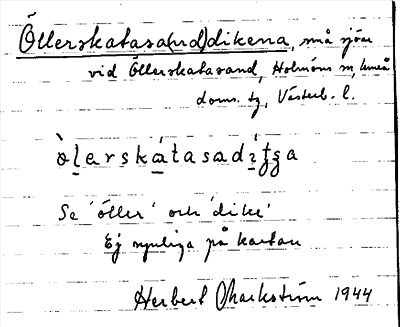 Öllerskatasa(nd)dikena, små sjöar
vid Öllerskatasand, Holmöns sn, Umeå
doms. tg, Västerb. l.
ò̀l̲erskátasadi̲ʒʒa
Se 'öller' och 'dike'
Ej synliga på kartan
Herbert Markström 1944